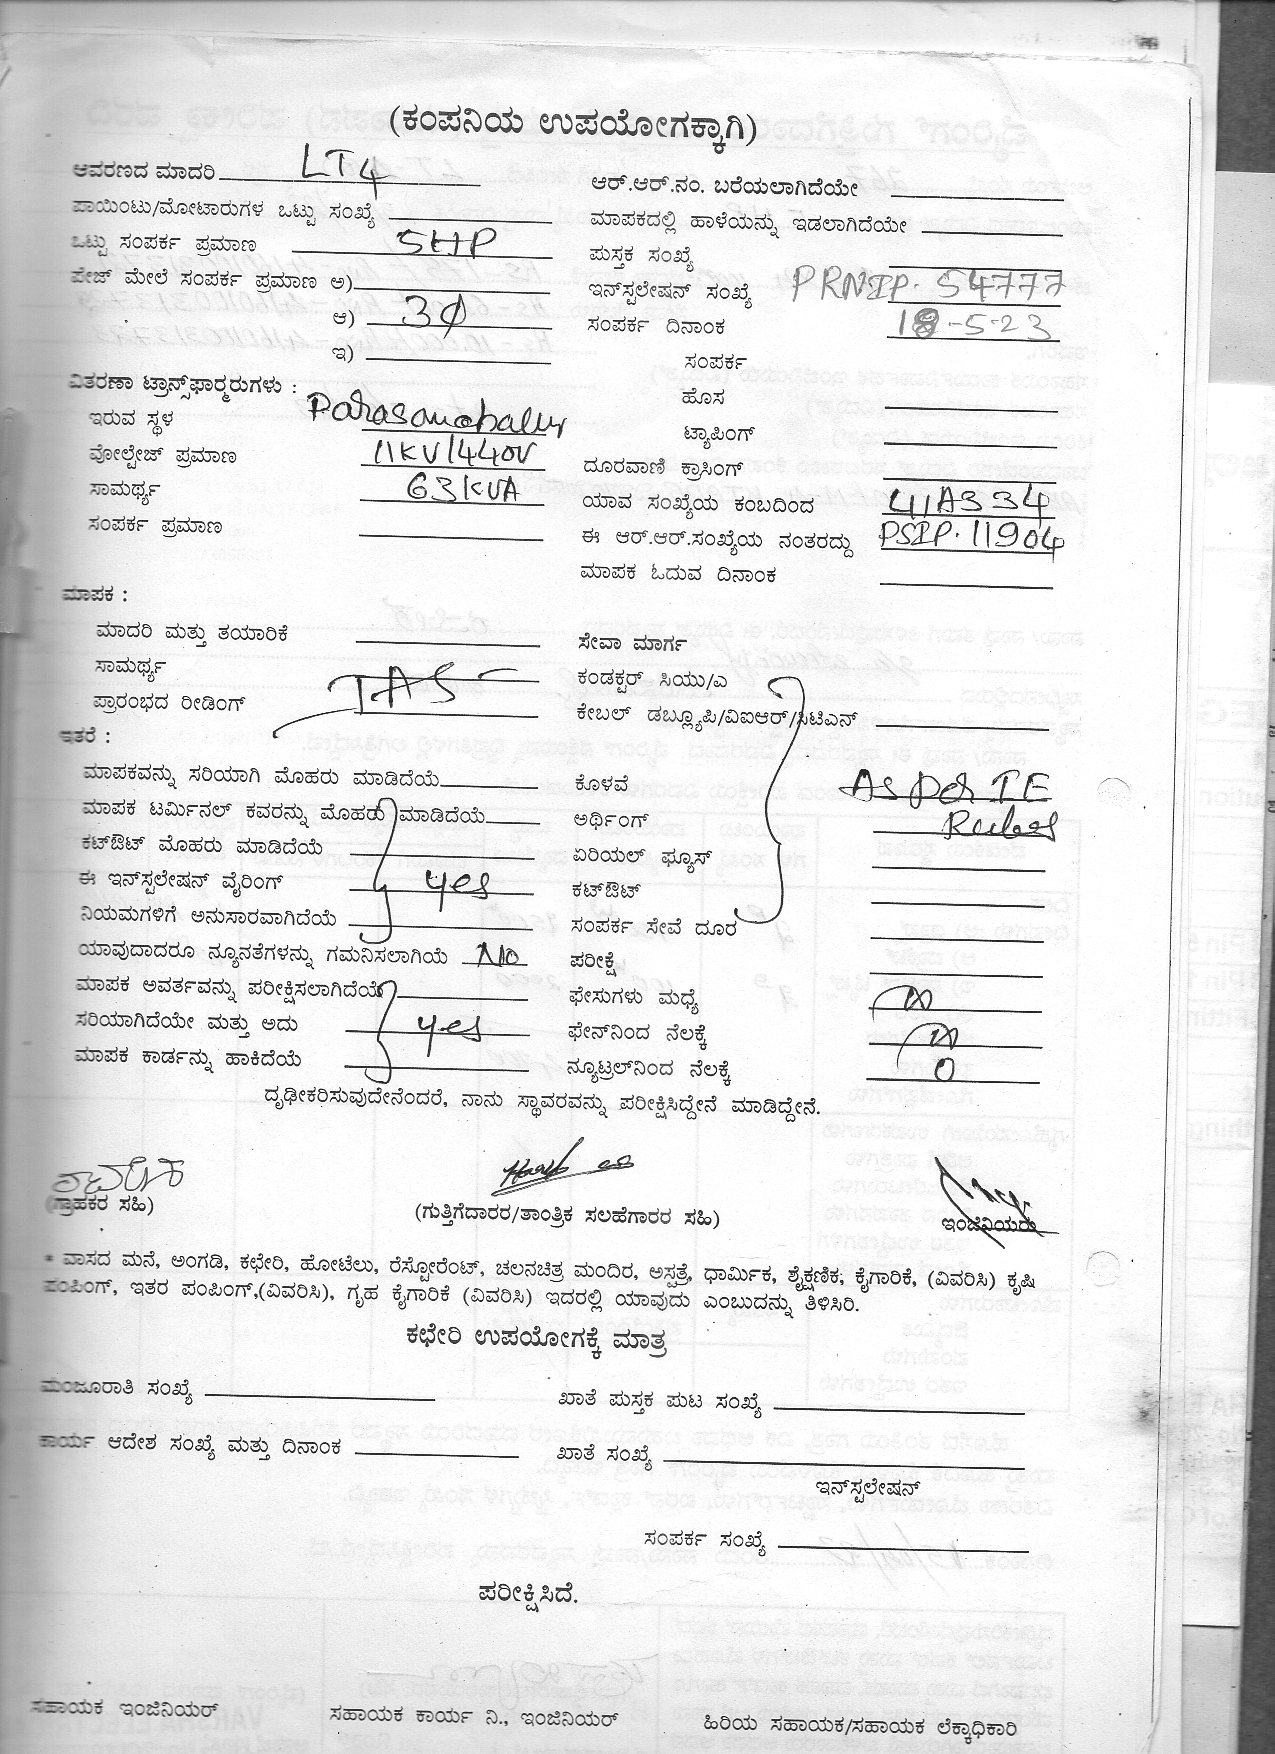 (ಕಂಪನಿಯ ಉಪಯೋಗಕ್ಕಾಗಿ)
ಆವರಣದ ಮಾದರಿ LT4
ಪಾಯಿಂಟು/ಮೋಟಾರುಗಳ ಒಟ್ಟು ಸಂಖ್ಯೆ
ಒಟ್ಟು ಸಂಪರ್ಕ ಪ್ರಮಾಣ 5HP
ಪೇಜ್ ಮೇಲೆ ಸಂಪರ್ಕ ಪ್ರಮಾಣ ಅ)
ಆ) 3Ø
ಇ)
ವಿತರಣಾ ಟ್ರಾನ್ಸ್‌ಫಾರ್‍ಮರುಗಳು :
ಇರುವ ಸ್ಥಳ
ವೋಲ್ಟೇಜ್ ಪ್ರಮಾಣ 11KV/440V
ಸಾಮರ್ಥ್ಯ 63KVA
ಸಂಪರ್ಕ ಪ್ರಮಾಣ
ಆರ್.ಆರ್.ನಂ. ಬರೆಯಲಾಗಿದೆಯೇ
ಮಾಪಕದಲ್ಲಿ ಹಾಳೆಯನ್ನು ಇಡಲಾಗಿದೆಯೇ
ಪುಸ್ತಕ ಸಂಖ್ಯೆ
ಇನ್‌ಸ್ಟಲೇಷನ್ ಸಂಖ್ಯೆ PRNIP. 54777
ಸಂಪರ್ಕ ದಿನಾಂಕ 18-5-23
ಸಂಪರ್ಕ
ಹೊಸ
ಟ್ಯಾಪಿಂಗ್
ದೂರವಾಣಿ ಕ್ರಾಸಿಂಗ್
ಯಾವ ಸಂಖ್ಯೆಯ ಕಂಬದಿಂದ
ಈ ಆರ್.ಆರ್.ಸಂಖ್ಯೆಯ ನಂತರದ್ದು PSIP. 11904
ಮಾಪಕ ಓದುವ ದಿನಾಂಕ
ಮಾಪಕ :
ಮಾದರಿ ಮತ್ತು ತಯಾರಿಕೆ
ಸಾಮರ್ಥ್ಯ
ಪ್ರಾರಂಭದ ರೀಡಿಂಗ್
ಇತರೆ :
ಮಾಪಕವನ್ನು ಸರಿಯಾಗಿ ಮೊಹರು ಮಾಡಿದೆಯೆ
ಮಾಪಕ ಟರ್ಮಿನಲ್ ಕವರನ್ನು ಮೊಹರು ಮಾಡಿದೆಯೆ
ಕಟ್‌ಔಟ್ ಮೊಹರು ಮಾಡಿದೆಯೆ
ಈ ಇನ್‌ಸ್ಟಲೇಷನ್ ವೈರಿಂಗ್ yes
ನಿಯಮಗಳಿಗೆ ಅನುಸಾರವಾಗಿದೆಯೆ
ಯಾವುದಾದರೂ ನ್ಯೂನತೆಗಳನ್ನು ಗಮನಿಸಲಾಗಿಯೆ No
ಮಾಪಕ ಅವರ್ತವನ್ನು ಪರೀಕ್ಷಿಸಲಾಗಿದೆಯೆ
ಸರಿಯಾಗಿದೆಯೇ ಮತ್ತು ಅದು yes
ಮಾಪಕ ಕಾರ್ಡನ್ನು ಹಾಕಿದೆಯೆ
ಸೇವಾ ಮಾರ್ಗ
ಕಂಡಕ್ಟರ್ ಸಿಯು/ಎ
ಕೇಬಲ್ ಡಬ್ಲ್ಯೂಪಿ/ವಿಐಆರ್/ಸಿಟಿಎನ್
ಕೊಳವೆ As per IE
ಅರ್ಥಿಂಗ್ Rules
ಏರಿಯಲ್ ಫ್ಯೂಸ್
ಕಟ್‌ಔಟ್
ಸಂಪರ್ಕ ಸೇವೆ ದೂರ
ಪರೀಕ್ಷೆ
ಫೇಸುಗಳು ಮಧ್ಯೆ
ಫೇನ್‌ನಿಂದ ನೆಲಕ್ಕೆ
ನ್ಯೂಟ್ರಲ್‌ನಿಂದ ನೆಲಕ್ಕೆ 0
ದೃಢೀಕರಿಸುವುದೇನೆಂದರೆ, ನಾನು ಸ್ಥಾವರವನ್ನು ಪರೀಕ್ಷಿಸಿದ್ದೇನೆ ಮಾಡಿದ್ದೇನೆ.
(ಗ್ರಾಹಕರ ಸಹಿ) (ಗುತ್ತಿಗೆದಾರರ/ತಾಂತ್ರಿಕ ಸಲಹೆಗಾರರ ಸಹಿ) ಇಂಜಿನಿಯರು
* ವಾಸದ ಮನೆ, ಅಂಗಡಿ, ಕಛೇರಿ, ಹೋಟೆಲು, ರೆಸ್ಟೋರೆಂಟ್, ಚಲನಚಿತ್ರ ಮಂದಿರ, ಅಸ್ಪತ್ರೆ, ಧಾರ್ಮಿಕ, ಶೈಕ್ಷಣಿಕ, ಕೈಗಾರಿಕೆ, (ವಿವರಿಸಿ) ಕೃಷಿ
ಪಂಪಿಂಗ್, ಇತರ ಪಂಪಿಂಗ್,(ವಿವರಿಸಿ), ಗೃಹ ಕೈಗಾರಿಕೆ (ವಿವರಿಸಿ) ಇದರಲ್ಲಿ ಯಾವುದು ಎಂಬುದನ್ನು ತಿಳಿಸಿರಿ.
ಕಛೇರಿ ಉಪಯೋಗಕ್ಕೆ ಮಾತ್ರ
ಮಂಜೂರಾತಿ ಸಂಖ್ಯೆ ಖಾತೆ ಪುಸ್ತಕ ಪುಟ ಸಂಖ್ಯೆ
ಕಾರ್ಯ ಆದೇಶ ಸಂಖ್ಯೆ ಮತ್ತು ದಿನಾಂಕ ಖಾತೆ ಸಂಖ್ಯೆ
ಇನ್‌ಸ್ಟಲೇಷನ್
ಸಂಪರ್ಕ ಸಂಖ್ಯೆ
ಪರೀಕ್ಷಿಸಿದೆ.
ಸಹಾಯಕ ಇಂಜಿನಿಯರ್ ಸಹಾಯಕ ಕಾರ್ಯ ನಿ., ಇಂಜಿನಿಯರ್ ಹಿರಿಯ ಸಹಾಯಕ/ಸಹಾಯಕ ಲೆಕ್ಕಾಧಿಕಾರಿ